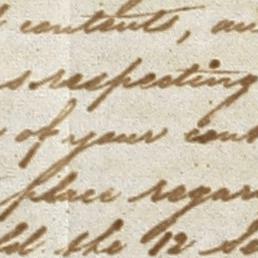 contents, an
respecting
of your con
place regar
the 12 Se